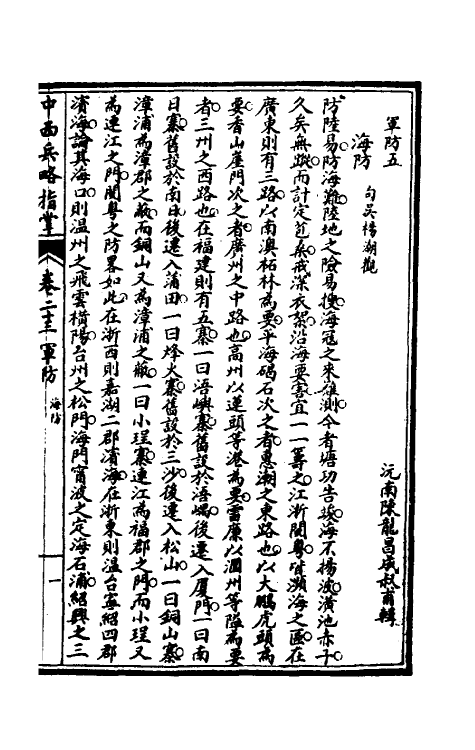 軍防五
沅南陳龍昌成叔甫輯
海防
句吳楊湖觀
防陸易防海難陸地之險易搜海寇之來難測今者塘功告竣海不揚波潢池赤子
久矣無蹤而計定苞桑戒深衣袽沿海要害宜一一籌之江浙閩粵皆瀕海之區在
廣東則有三路以南澳柘林為要平海碣石次之者惠潮之東路也以大鵬虎頭為
要香山崖門次之者廣州之中路也高州以蓮頭等港為要雷廉以潿州等隘為要
者三州之西路也在福建則有五寨一曰浯嶼寨舊設於浯嶼後遷入厦門一曰南
日寨舊設於南日後遷入莆田一曰烽火寨舊設於三沙後遷入松山一曰銅山寨
漳浦為漳郡之蔽而銅山又為漳浦之蔽一曰小埕寨連江為福郡之門而小埕又
為連江之門閩粵之防畧如此在浙西則嘉湖二郡濱海在浙東則溫台寧紹四郡
濱海論其海口則溫州之飛雲橫陽台州之松門海門寧波之定海石浦紹興之三
中西兵略指掌
卷二十三
軍防
海防
一